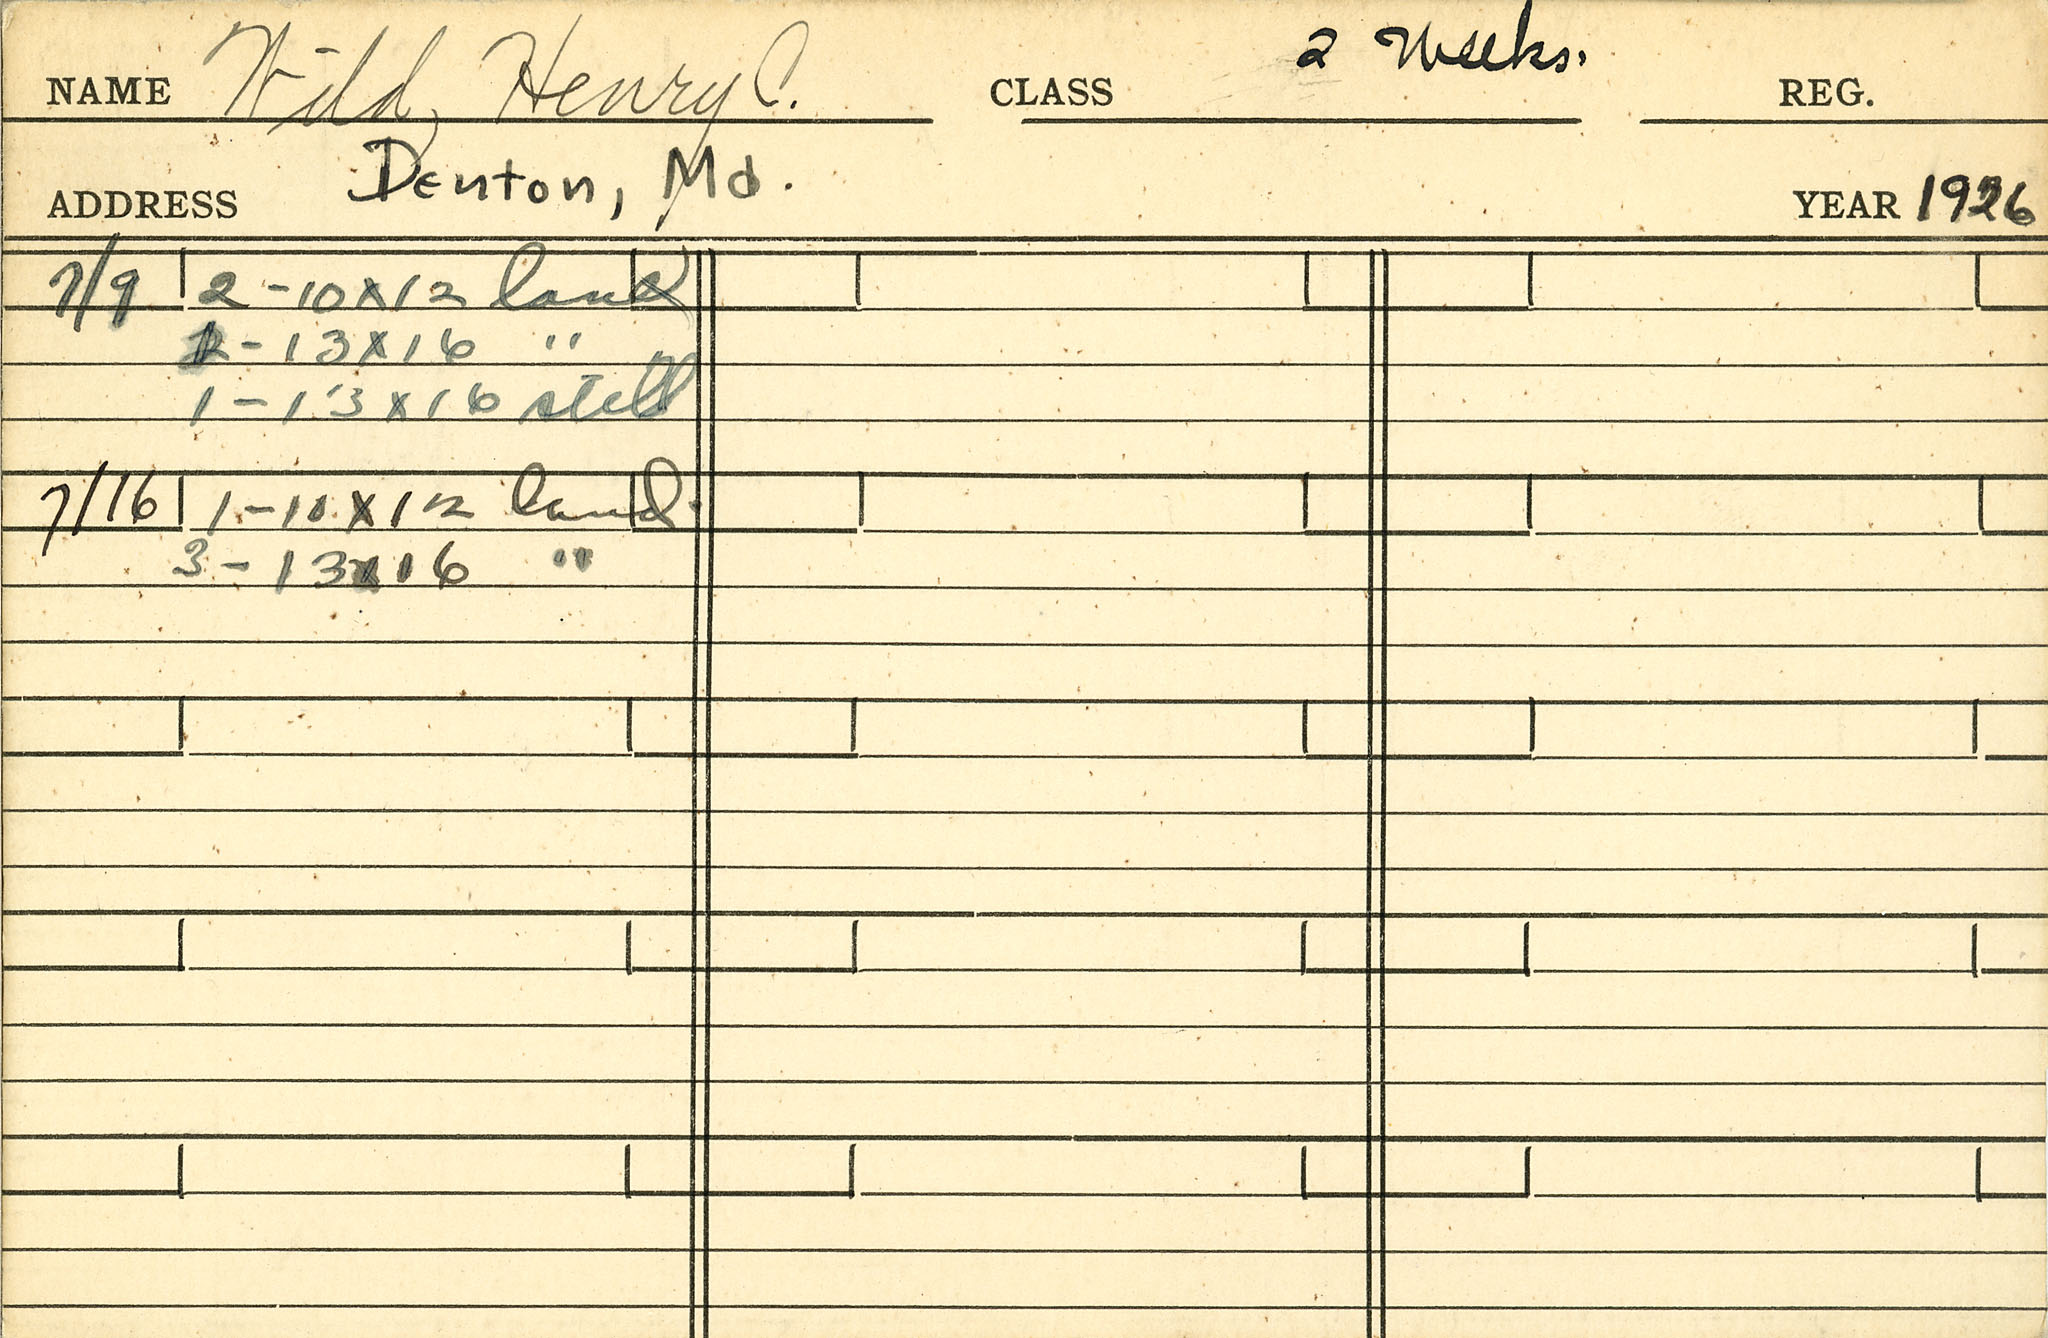 NAME Wild, Henry C. CLASS 2 Weeks. REG.
ADDRESS Denton, Md. YEAR 1926
7/9 2-10x12 land
-13x16 "
1-13x16 still
7/16 1-10x12 land.
3-13x16 "